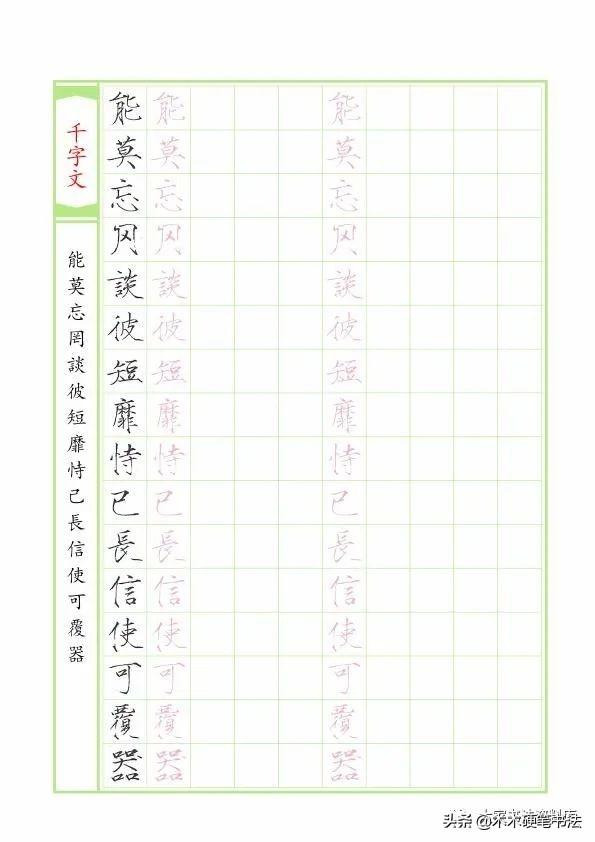 千字文
能莫忘罔談彼短靡恃己長信使可覆器
能莫忘罔談彼短靡恃己長信使可覆器
能莫忘罔談彼短靡恃己長信使可覆器
能莫忘罔談彼短靡恃己長信使可覆器
头条 @木木硬笔书法